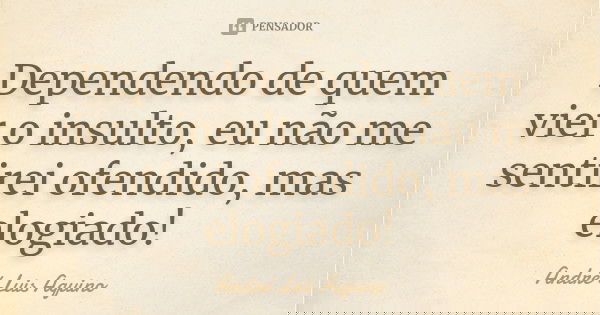 PENSADOR
Dependendo de quem
vier o insulto, eu não me
sentirei ofendido, mas
elogiado!
André Luis Aquino